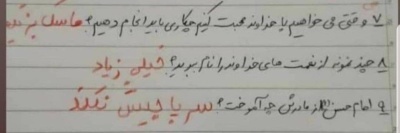 ۷ وقتی می خواهیم با خداوند صحبت کنیم چکاری باید انجام دهیم؟ ماسک بزنیم
۸ چند نمونه از نعمت های خداوند را نام ببرید؟ خیلی زیاد
۹ امام حسن از مادرش چه آموخت؟ سر پا جیش نکند